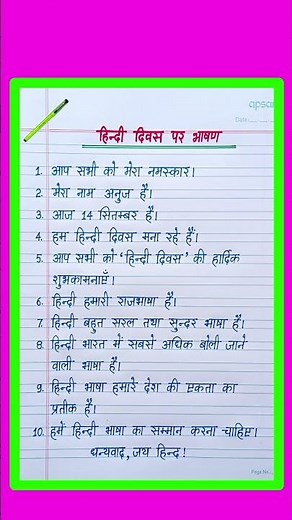 apsa
Date:
हिन्दी दिवस पर भाषण
1. आप सभी को मेरा नमस्कार।
2. मेरा नाम अनुज है।
3. आज 14 सितम्बर है।
4. हम हिन्दी दिवस मना रहे हैं।
5. आप सभी को ‘हिन्दी दिवस’ की हार्दिक
शुभकामनाएँ।
6. हिन्दी हमारी राजभाषा है।
7. हिन्दी बहुत सरल तथा सुन्दर भाषा है।
8. हिन्दी भारत में सबसे अधिक बोली जाने
वाली भाषा है।
9. हिन्दी भाषा हमारे देश की एकता का
प्रतीक है।
10. हमें हिन्दी भाषा का सम्मान करना चाहिए।
धन्यवाद, जय हिन्द!
Page No.